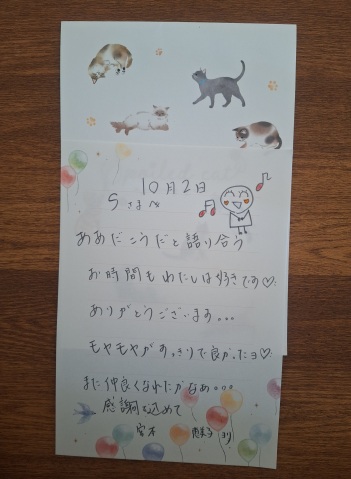 10月2日
Sさまへ
ああだこうだと語り合う
お時間もわたしは好きです♡
ありがとうございます。。。
モヤモヤがすっきりで良かったヨ♡
また仲良くなれたかなぁ。。。
感謝を込めて
恵子より